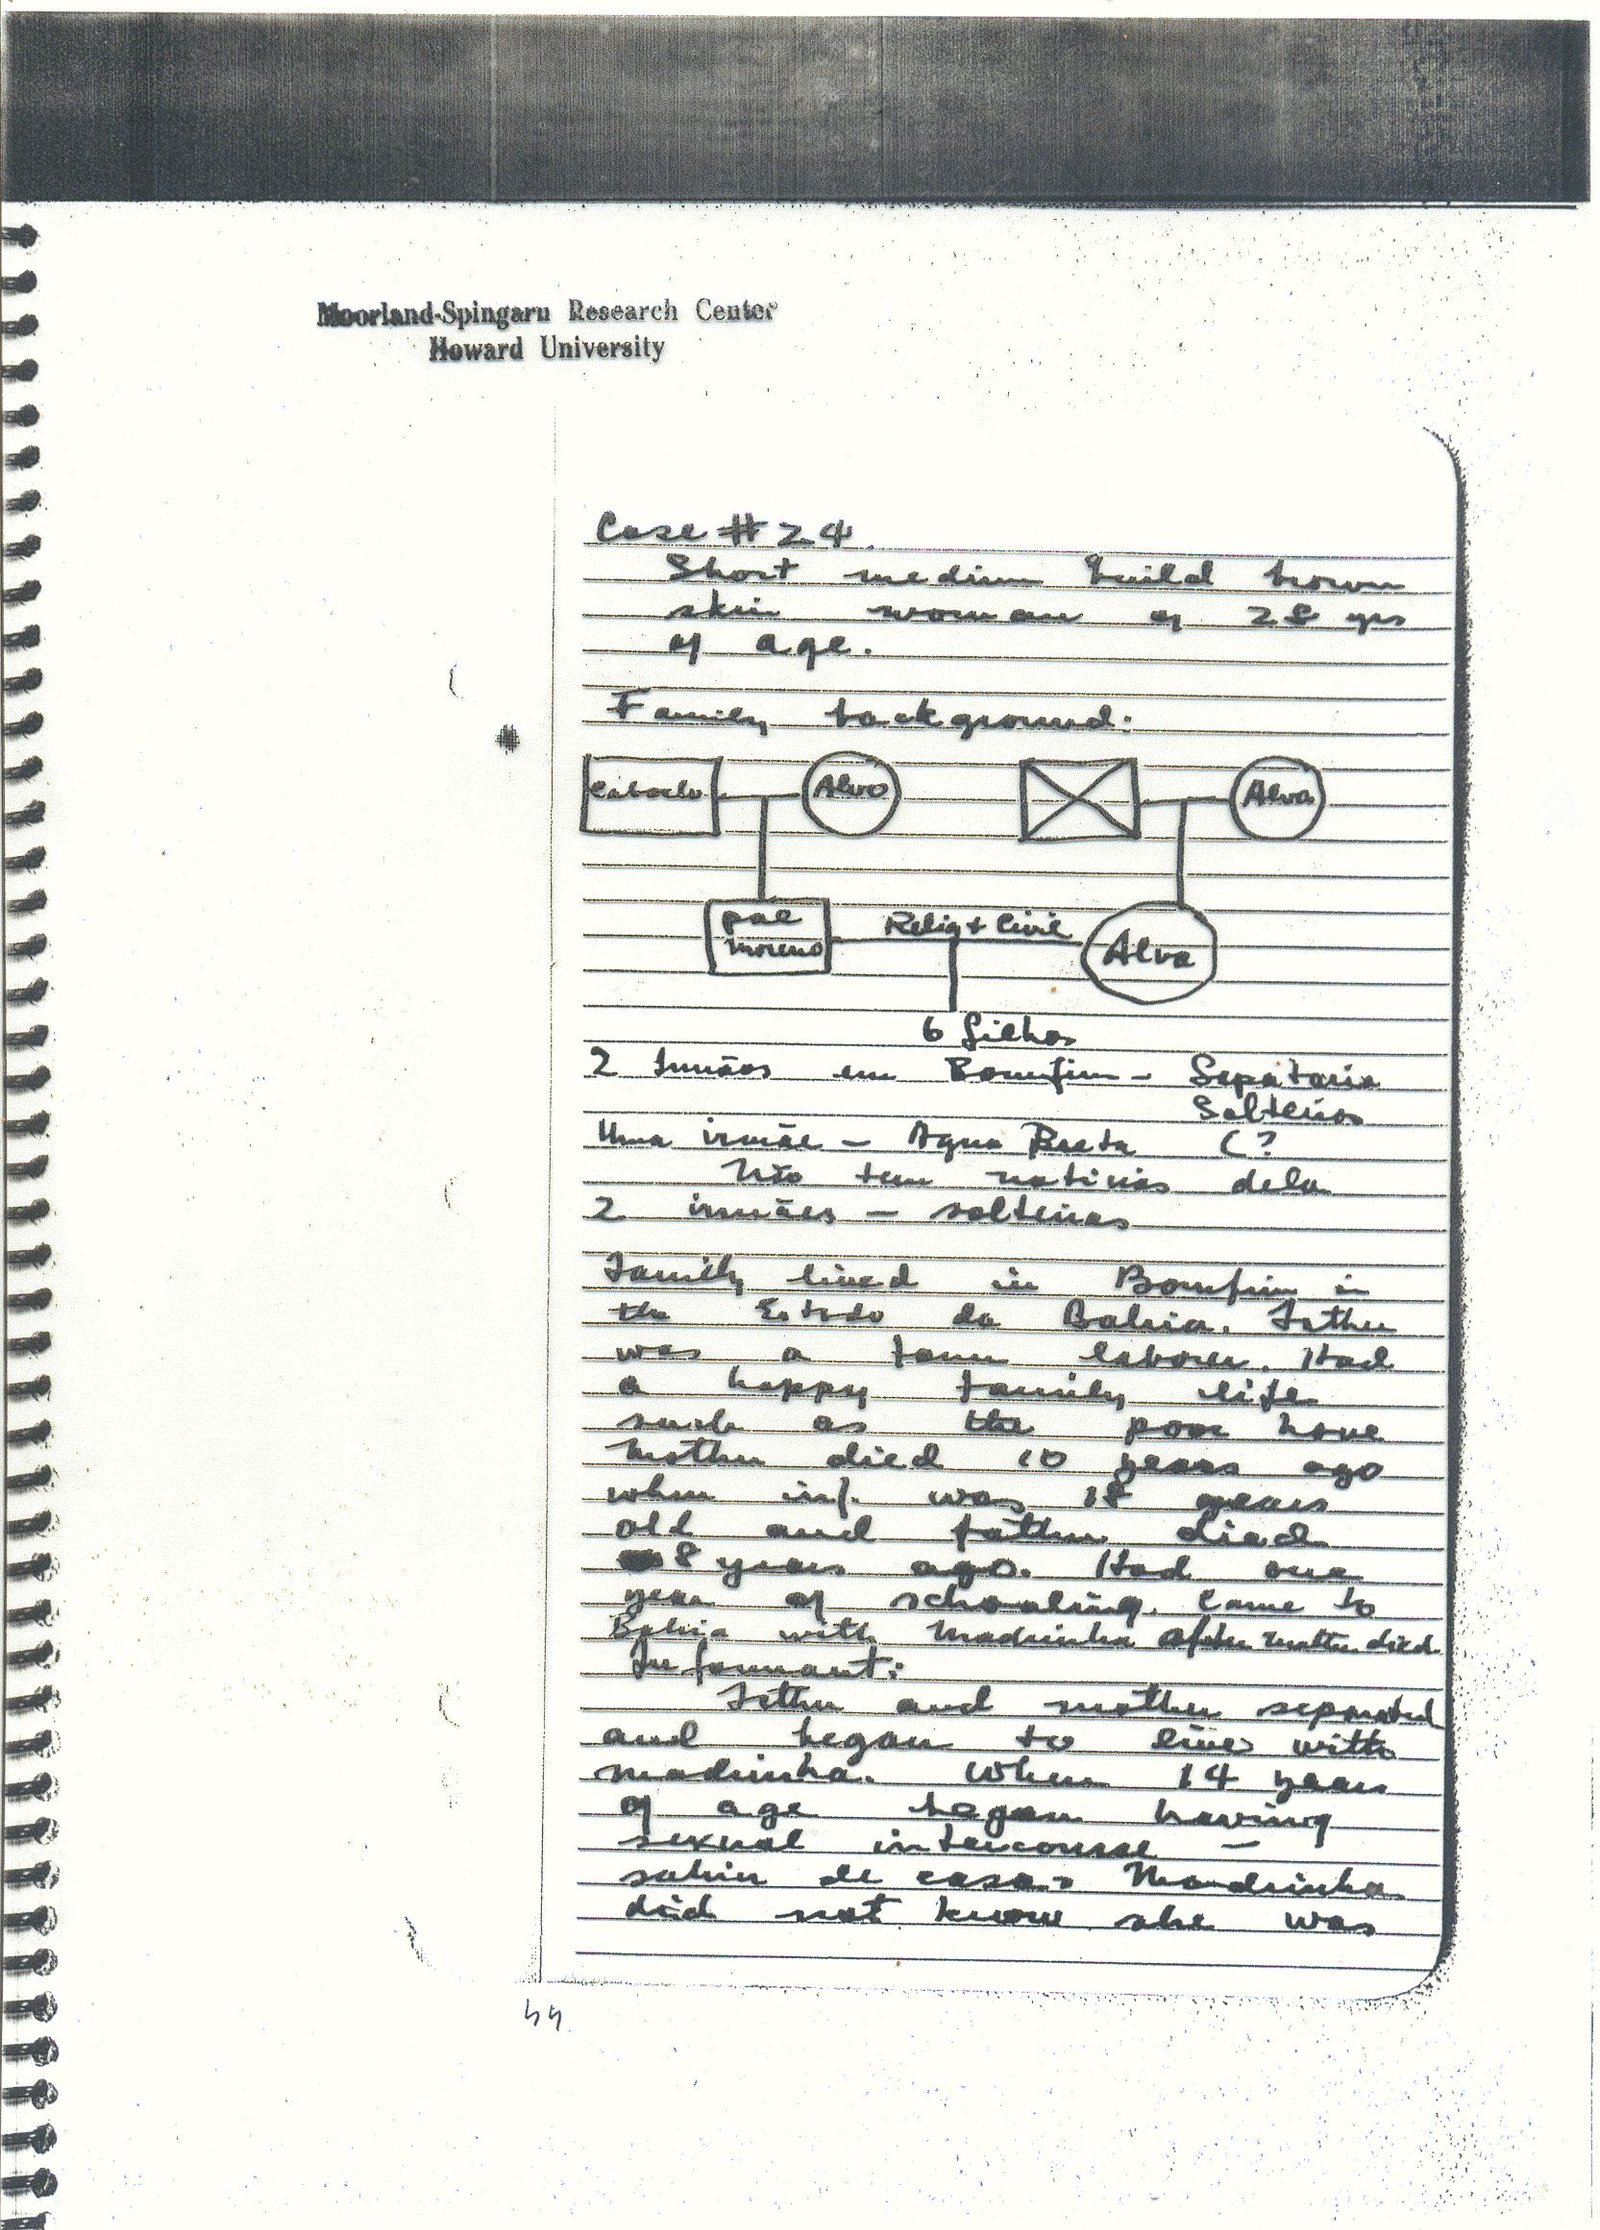 Moorland-Spingarn Research Center
Howard University
Case # 24
Short medium build brown
skin woman of 28 yrs
of age.
Family background:
Caboclo Alvo Alva
pae moreno Relig + Civil Alva
6 filhos
2 Irmãos em Bomfim - Sapataria
Solteiros
Uma irmãe - Agua Preta (?
Não tem noticias dela
2 irmães - solteiras
Family lived in Bomfim in
the Estado da Bahia. Father
was a farm laborer. Had
a happy family life
such as the poor have
Mother died 10 years ago
when inf. was 18 years
old and father died
8 years ago. Had one
year of schooling. Came to
Bahia with Madrinha after mother died
Informant:
Father and mother separated
and began to live with
madrinha. When 14 years
of age began having
sexual intercourse -
sahir de casa. Madrinha
did not know she was
44